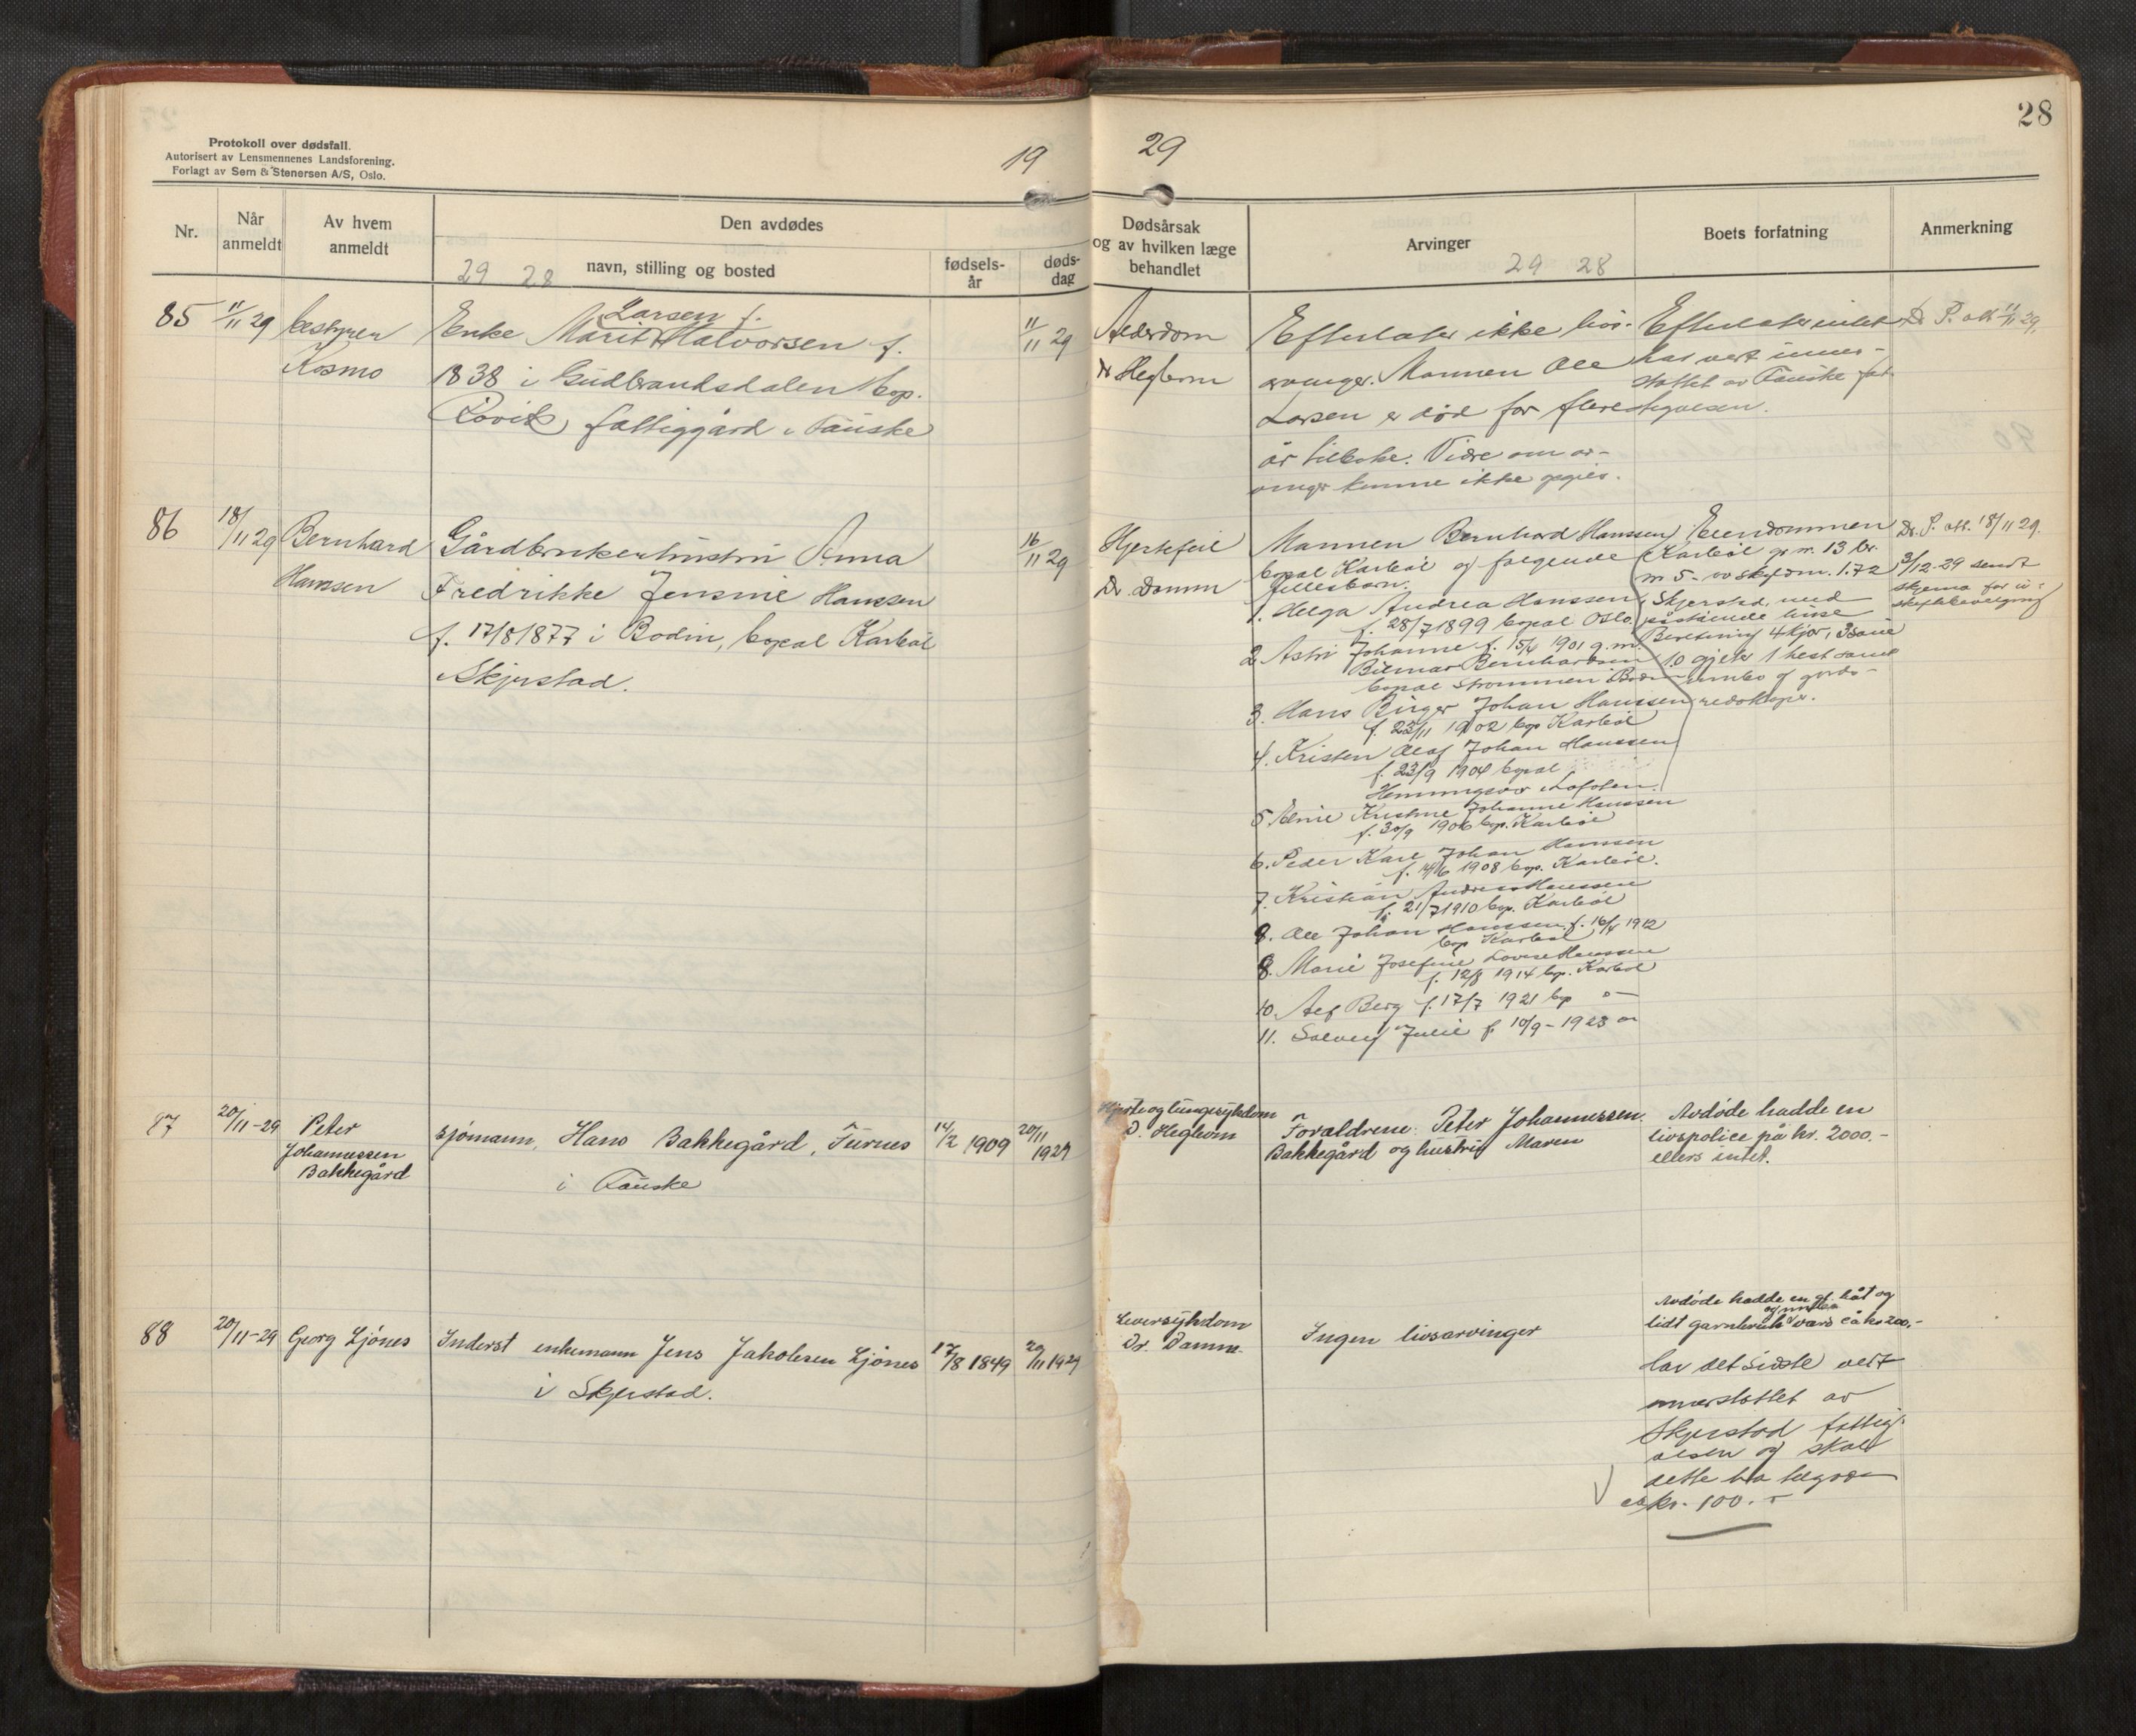 28
Protokoll over dødsfall.
Autorisert av Lensmennenes Landsforening.
Forlagt av Sem & Stenersen A/S, Oslo.
19 29
Nr.
Når anmeldt
Av hvem anmeldt
Den avdødes
29 28 navn, stilling og bosted
fødsels-år
døds-dag
Dødsårsak
og av hvilken læge
behandlet
Arvinger
29 28
Boets forfatning
Anmerkning
85
11/11 29
bestyrer
Kosmo
Larsen f.
Enke Marit Halvorsen f.
1838 i Gudbrandsdalen bop.
Rovik fattiggård i Fauske
11/11 29
Alderdom
Dr Heglom
Efterlater ikke livs-
arvinger. Mannen Ole
Larsen er død for flere
år tilbake. Videre om ar-
vinger kunne ikke opgies.
Efterlater intet
har vært under-
støttet av Fauske fat-
tigvesen.
Dr. P. att 11/11 29.
86
18/11 29
Bernhard
Hanssen
Gårdbrukerhustru Anna
Fredrikke Jensine Hanssen
f. 17/8 1877 i Bodin, bopal Karbøl
i Skjerstad.
16/11 29
Hjertefeil
Dr. Damm
Mannen Bernhard Hanssen
bopal Karbøl og følgende
fellesbarn.
1. Helga Andrea Hanssen
f. 28/7 1899 bopal Oslo
2. Astri Johanne f. 15/4 1901 g. m.
Bernhardsen
bopal Strømmen i Bodin
3. Hans Birger Johan Hanssen
f. 23/11 1902 bop Karbøl
4. Kristen Olaf Johan Hanssen
f. 23/9 1904 bopal
Henningsvær i Lofoten.
5. Kristine Johanne Hanssen
f. 30/9 1906 bop. Karbøl
6. Peder Karl Johan Hanssen
f. 14/6 1908 bop. Karbøl.
7. Kristian Andreas Hanssen
f. 21/7 1910 bop. Karbøl
8. Ole Johan Hanssen f. 16/4 1912
bop Karbøl
9. Marie Josefine Lovise Hanssen
f. 12/8 1914 bop. Karbøl
10. Alf Berg f. 17/7 1921 bop —
11. Solveig Julie f. 10/9 - 1923
Eiendommen
Karbøl gr. nr. 13 br.
nr 5 - av skyldm. 1.72
i Skjerstad, med
påstående huse
Besetning 4 kjør, 3 sauer
10 gjeter 1 hest samt
innbo og gårds-
redskaper.
Dr. P. att. 18/11 29.
3/12-29 sendt
skjema for u-
skiftebevilgning
87
20/11-29
Peter
Johannessen
Bakkegård
sjømann, Hans Bakkegård, Furnes
i Fauske
14/2 1909
20/11 1929
Hjerte og lungesykdom
D. Heglom
Foraldrene: Peter Johannessen
Bakkegård og hustru Maren
Avdøde hadde en
livspolice på kr. 2000.-
ellers intet.
88
20/11-29
Georg Ljønes
Inderst enkemann Jens Jakobsen Ljønes
i Skjerstad.
17/8 1849
20/11 1929
Leversykdom
Dr. Damm.
Ingen livsarvinger
Avdøde hadde en gl. båt og
lidt garnbruk
Har det sidste vert
understøttet av
Skjerstad fattig-
vesen og skal
dette ha
ca kr. 100.-